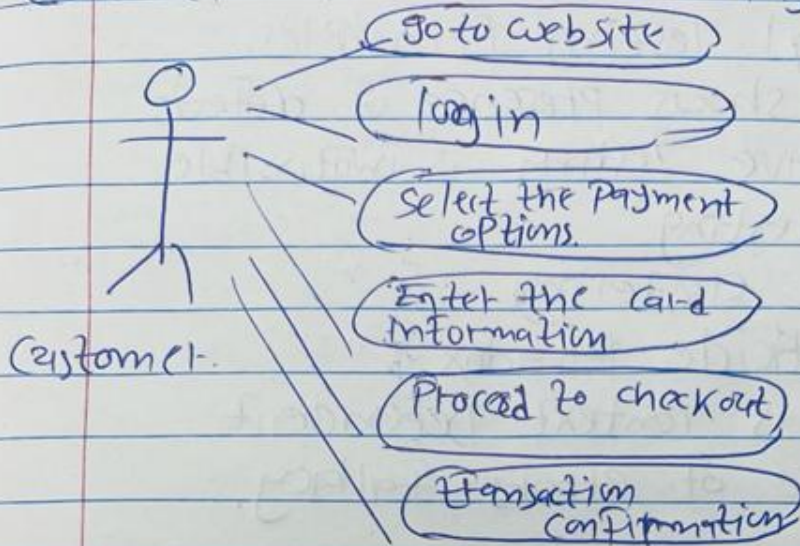 go to website
login
Select the Payment
options.
Enter the Card
information
Customer.
Proceed to checkout
transaction
confirmation